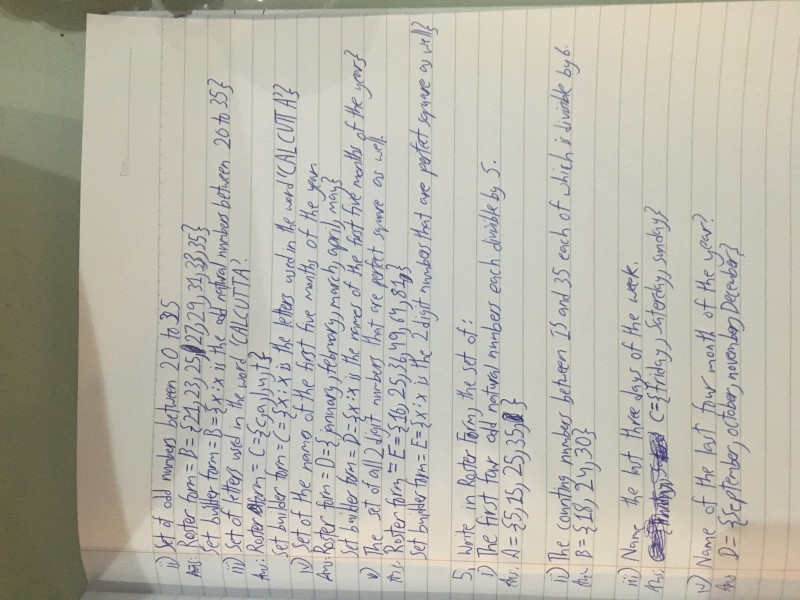 ii) Set of odd numbers between 20 to 35
Ans: Roster form = B = {21,23,25,27,29,31,33,35}
Set builter form = B = {x:x is the odd natural numbers between 20 to 35}
iii) Set of letters used in the word 'CALCUTTA'?
Ans: Roster form = C = {c,a,l,u,t}
Set builder form = C = {x:x is the letters used in the word "CALCUTTA"}
iv) Set of the names of the first five months of the year.
Ans: Roster form = D = {january, february, march, april, may}
Set builder form = D = {x:x is the names of the first five months of the year}
v) The set of all 2 digit numbers that are perfect square as well.
Ans: Roster form = E = {16,25,36,49,64,81}
Set builder form = E = {x:x is the 2 digit numbers that are perfect square as well}
5. Write in Roster Form, the set of:
i) The first four odd natural numbers each divisible by 5.
Ans: A = {5,15,25,35}
ii) The counting numbers between 15 and 35 each of which is divisible by 6.
Ans: B = {18,24,30}
iii) Name the last three days of the week.
Ans: C = {friday, Saterday, sunday}
iv) Name of the last four month of the year?
Ans D = {September, october, november, December}